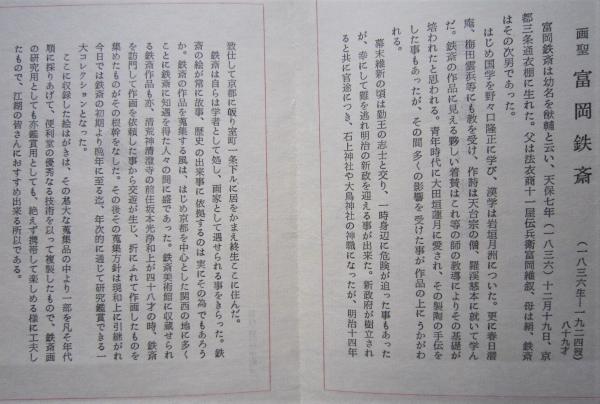 画聖 富岡鉄斎
(一八三六生―一九二四歿)
八十九才
富岡鉄斎は幼名を猷輔と云い、天保七年(一八三六)十二月十九日、京
都三条通衣棚に生れた。父は法衣商十一屋伝兵衛富岡維叙、母は絹、鉄斎
はその次男であった。
はじめ国学を野々口隆正に学び、漢学は岩垣月洲についた。更に春日潜
庵、梅田雲浜等にも教を受け、作詩は天台宗の僧、羅渓慈本に就いて学ん
だ。鉄斎の作品に見える夥しい着賛はこれ等の師の教導によりその基礎が
培われたと思われる。青年時代に大田垣蓮月に愛され、その製陶の手伝を
した事もあったが、その間多くの影響を受けた事が作品の上にうかがわ
れる。
幕末維新の頃は勤王の志士と交り、一時身辺に危険が迫った事もあった
が、幸にして難を逃れ明治の新政を迎える事が出来た。新政府が樹立され
ると共に官途につき、石上神社や大鳥神社の神職になったが、明治十四年
致仕して京都に皈り室町一条下ルに居をかまえ終生ここに住んだ。
鉄斎は自らは学者として処し、画家として遇せられる事をきらった。鉄
斎の絵が常に故事、歴史の出来事に依拠するのは実にその為でもあろう
か。鉄斎の作品を蒐集する風は、はじめ京都を中心とした関西の地に多く
ことに鉄斎に知遇を得た人々の間に盛であった。鉄斎美術館に収蔵せられ
る鉄斎作品も亦、清荒神清澄寺の前住坂本光浄和上が四十八才の時、鉄斎
を訪問して作画を依頼した事から交遊が生じ、折にふれて作画したものを
集めたものがその根幹をなした。その後その蒐集方針は現和上に引継がれ
今日では鉄斎の初期より晩年に至る迄、年次的に通じて研究鑑賞できる一
大コレクションとなった。
ここに収録した絵はがきは、その厖大な蒐集品の中より一部を凡そ年代
順に採りあげて、便利堂の優秀なる技術を以って複製したもので、鉄斎画
の研究用としても亦鑑賞用としても、絶えず携帯して楽しめる様に工夫し
たもので、江湖の皆さんにおすすめ出来る所以である。